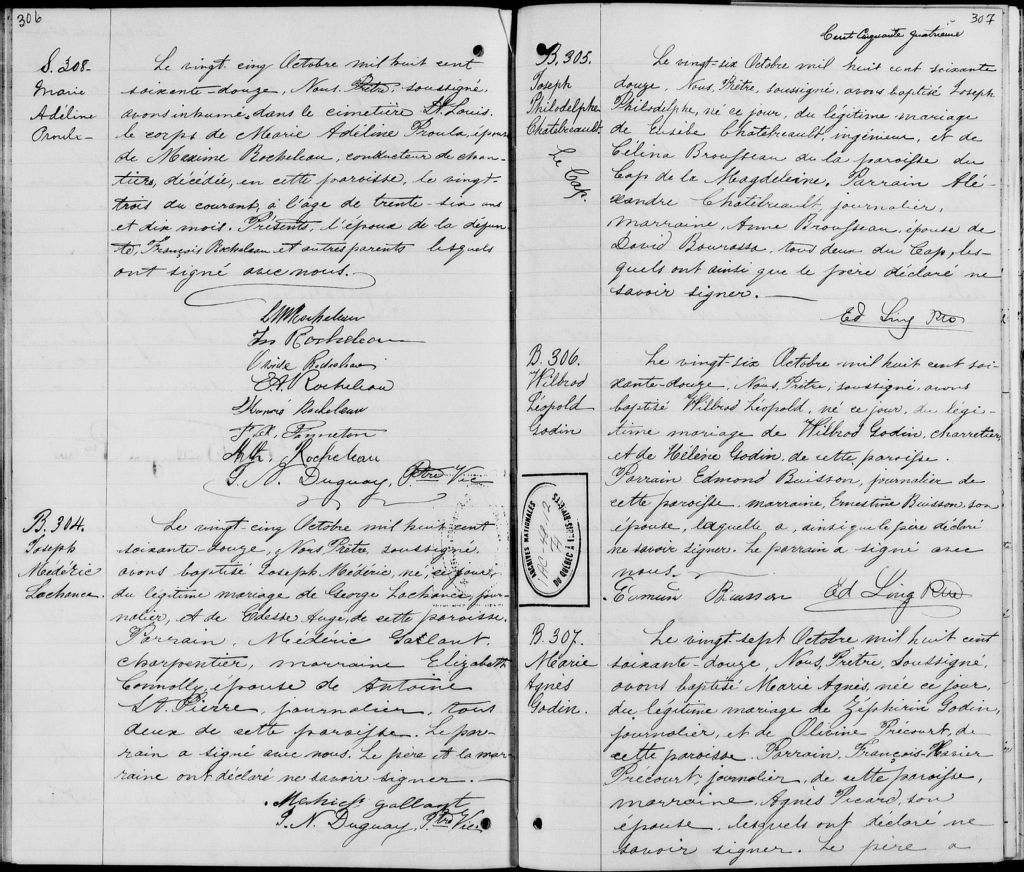 306
S. 308.
Marie
Adéline
Proulx
Le vingt cinq Octobre mil huit cent
soixante-douze, Nous Prêtre soussigné,
avons inhumé dans le cimetière St. Louis,
le corps de Marie Adéline Proulx, épouse
de Maxime Rocheleau, conducteur de chan-
tiers, décédée, en cette paroisse, le vingt-
trois du courant, à l'âge de trente-six ans
et dix mois. Présents, l'époux de la défun-
te, François Rocheleau et autres parents lesquels
ont signé avec nous.
Rocheleau
Rocheleau
Rocheleau
Rocheleau
Honoré Rocheleau
F. X. Panneton
Rocheleau
J. N. Duguay, Ptre Vic
B. 304.
Joseph
Médéric
Lachance
Le vingt cinq Octobre mil huit cent
soixante-douze, Nous Prêtre soussigné,
avons baptisé Joseph Médéric, né, ce jour,
du légitime mariage de George Lachance, jour-
nalier, et de Edesse Augé, de cette paroisse.
Parrain, Médéric Gallant,
charpentier, marraine Elizabeth
Connolly, épouse de Antoine
St. Pierre, journalier, tous
deux de cette paroisse. Le par-
rain a signé avec nous. Le père et la mar-
raine ont déclaré ne savoir signer.
gallant
J. N. Duguay, Ptre Vic
307
Cent Cinquante quatrième
B. 305.
Joseph
Philodelphe
Chatebreault
Le Cap.
Le vingt-six Octobre mil huit cent soixante
douze, Nous, Prêtre, soussigné, avons baptisé Joseph
Philodelphe, né ce jour, du légitime mariage
de Eusèbe Chatebreault, ingénieur, et de
Célina Brousseau de la paroisse du
Cap de la Magdeleine. Parrain Alé-
xandre Chatebreault, journalier,
marraine, Anne Brousseau, épouse de
David Bourassa, tous deux du Cap, les-
quels ont ainsi que le père déclaré ne
savoir signer.
Ed Ling Ptre
B. 306.
Wilbrod
Léopold
Godin
Le vingt-six Octobre mil huit cent soi-
xante-douze, Nous, Prêtre, soussigné, avons
baptisé Wilbrod Léopold, né ce jour, du légi-
time mariage de Wilbrod Godin, charretier,
et de Hélène Godin, de cette paroisse.
Parrain Edmond Buisson, journalier de
cette paroisse, marraine, Ernestine Buisson, son
épouse, laquelle a, ainsi que le père déclaré
ne savoir signer. Le parrain a signé avec
nous.
Buisson Ed Ling Ptre
ARCHIVES NATIONALES
DU QUÉBEC À T.
B. 307.
Marie
Agnès
Godin.
Le vingt-sept Octobre mil huit cent
soixante-douze, Nous, Prêtre, soussigné,
avons baptisé Marie Agnès, née ce jour,
du légitime mariage de Zéphirin Godin,
journalier, et de Olivine Précourt, de
cette paroisse. Parrain, François-Xavier
Précourt, journalier, de cette paroisse,
marraine, Agnès Picard, son
épouse, lesquels ont déclaré ne
savoir signer. Le père a